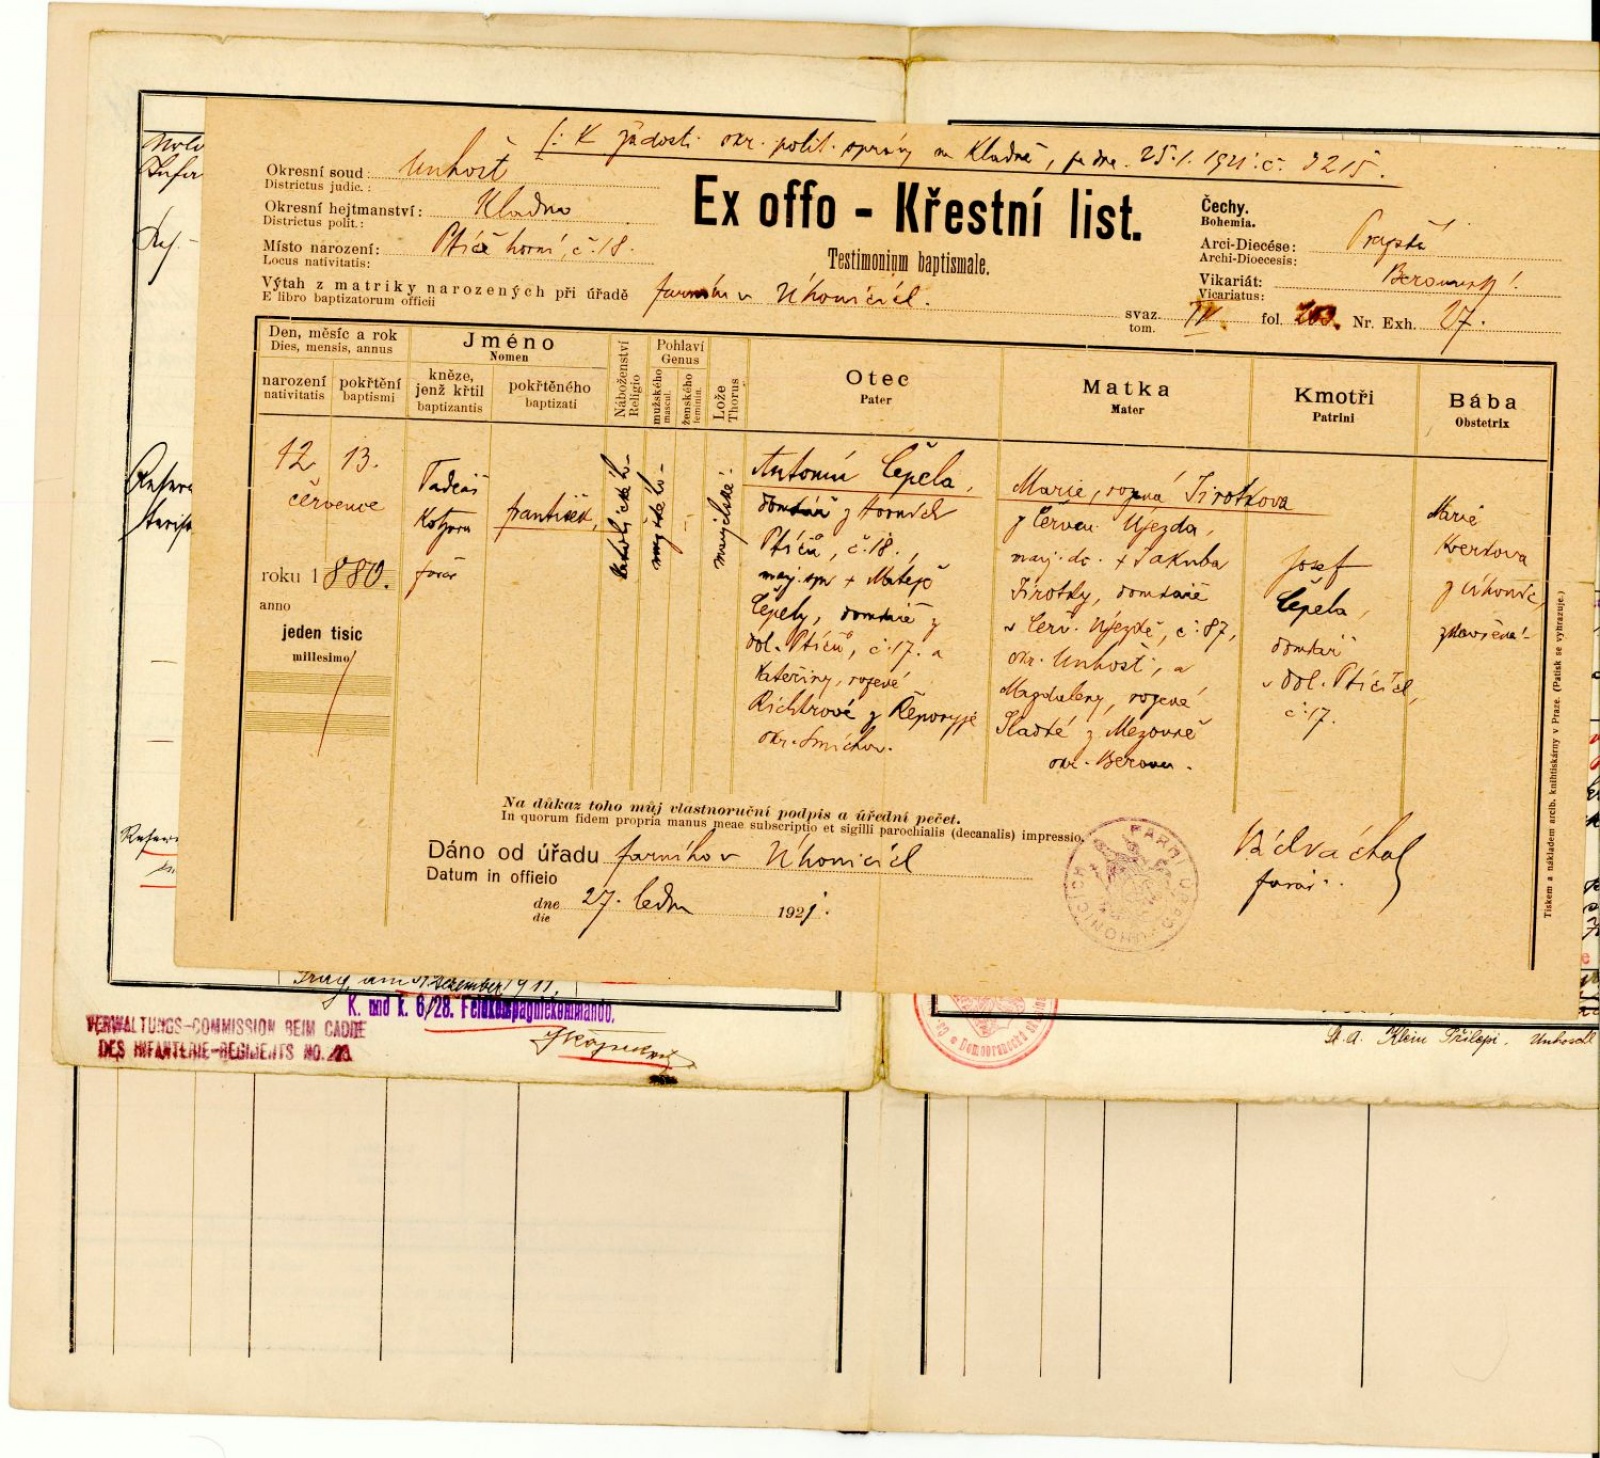 /: K žádosti okr. polit. správy na Kladně, ze dne 25.1.1921 č. 3215.
Okresní soud: Unhošť
Districtus judic.:
Okresní hejtmanství: Kladno
Districtus polit.:
Místo narození: Ptice horní, č. 18.
Locus nativitatis:
Výtah z matriky narozených při úřadě farním v Úhonicích.
E libro baptizatorum officii
Ex offo - Křestní list.
Testimonium baptismale.
Čechy.
Bohemia.
Arci-Diecése: Pražská
Archi-Dioecesis:
Vikariát: Berounský
Vicariatus:
svaz. IV. fol. 203. Nr. Exh. 27.
tom.
Den, měsíc a rok
Dies, mensis, annus
narození
nativitatis
pokřtění
baptismi
Jméno
Nomen
kněze,
jenž křtil
baptizantis
pokřtěného
baptizati
Náboženství
Religio
Pohlaví
Genus
mužského
mascul.
ženského
feminin.
Lože
Thorus
Otec
Pater
Matka
Mater
Kmotři
Patrini
Bába
Obstetrix
12. 13.
července
roku 1880.
anno
jeden tisíc
millesimo
Tadeáš
farář
František,
katolického
mužského
manželské
Antonín Čepela,
domkář z Horních
Ptic, č. 18.,
manž. syn + Matěje
Čepely, domkáře z
dol. Ptic, č. 17. a
Kateřiny, rozené
Richtrové z Řeporyje
okr. Smíchov.
Marie, rozená Jirotkova
z Červen. Újezda,
manž. dc. + Jakuba
Jirotky, domkáře
v Červ. Újezdě, č. 87,
okr. Unhošť, a
Magdaleny, rozené
Sladké z Mezouně
okr. Beroun.
Josef
Čepela,
domkář
v dol. Pticích,
č. 17.
Marie
Kvertova
z Úhonic,
zkoušená
Na důkaz toho můj vlastnoruční podpis a úřední pečet.
In quorum fidem propria manus meae subscriptio et sigilli parochialis (decanalis) impressio.
Dáno od úřadu farního v Úhonicích
Datum in officio
dne 27. ledna 1921.
die
FARNÍ ÚŘAD ÚHONICÍCH
farář
Tiskem a nákladem arcib. knihtiskárny v Praze. (Patisk se vyhrazuje.)
Prag, am 31 Dezember 1911.
K. und k. 6/28. Feldkompagniekommando.
VERWALTUNGS-COMMISSION BEIM CADRE
DES INFANTERIE-REGIMENTS NO. 28
St. A. Klein Přílepi, Unhoscht